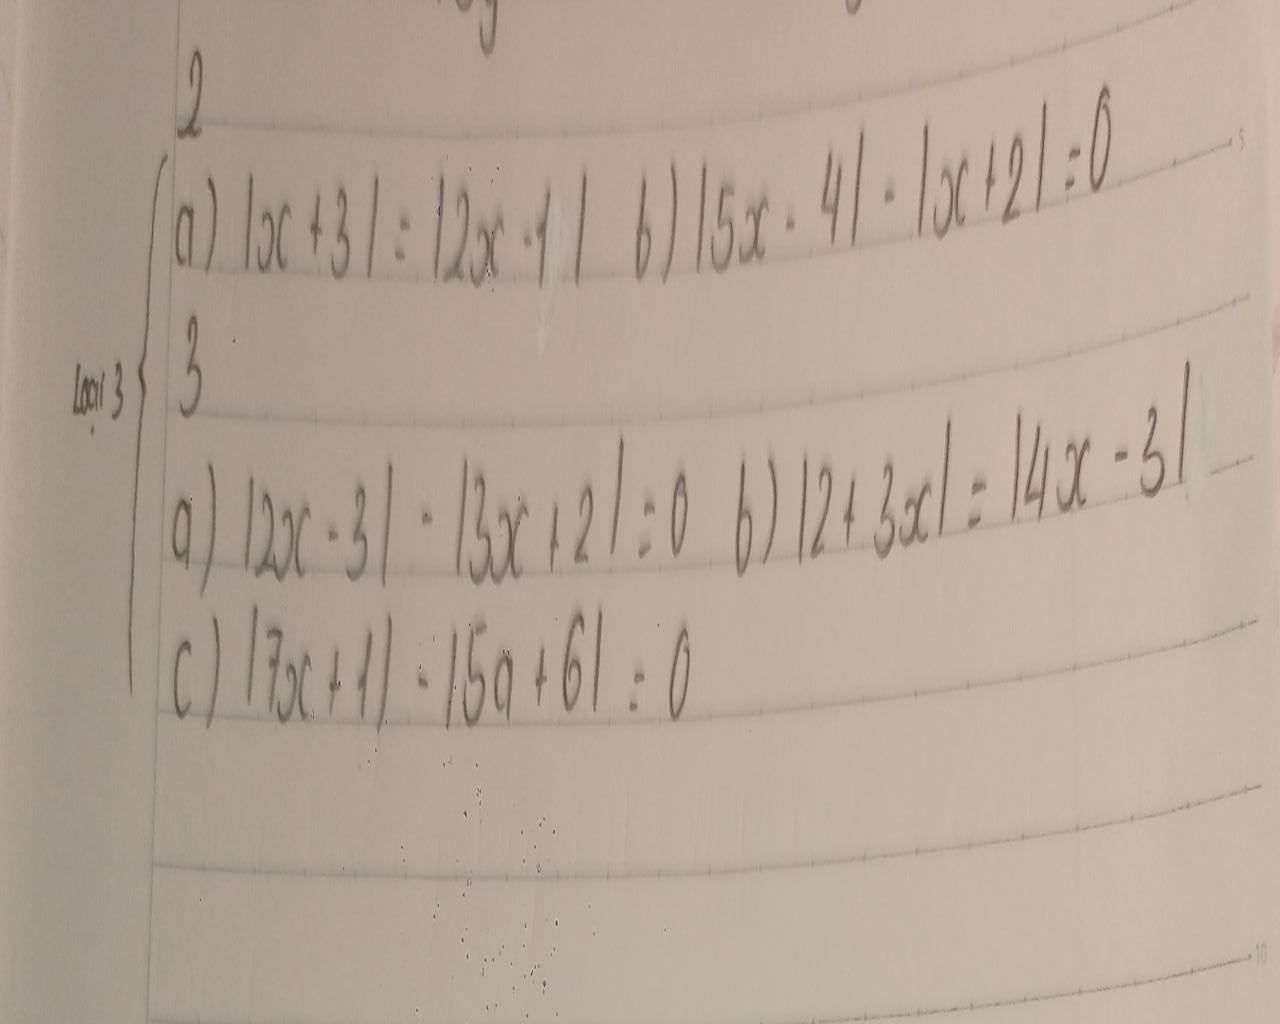 2
a) |x + 3| = |2x - 1| b) |5x - 4| - |x + 2| = 0
3
Loại 3
a) |2x - 3| - |3x + 2| = 0 b) |2 + 3x| = |4x - 3|
c) |7x + 1| - |5a + 6| = 0